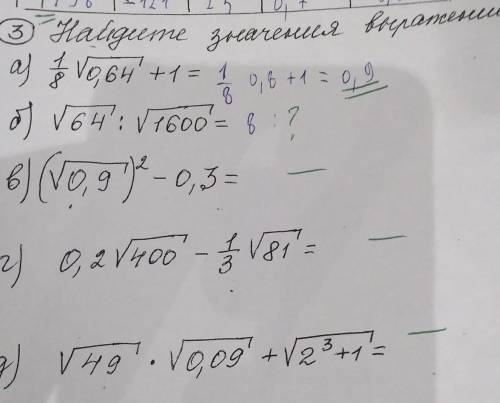 3 Найдите значения выражений
а) 1/8 √0,64 + 1 = 1/8 0,8 + 1 = 0,9
б) √64 : √1600 = 8 : ?
в) (√0,9)² − 0,3 = —
г) 0,2√400 − 1/3 √81 = —
д) √49 · √0,09 + √2³+1 = —